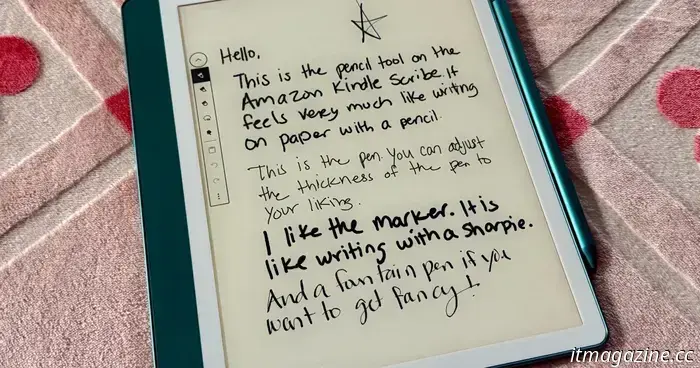 Hello,
This is the pencil tool on the
Amazon Kindle Scribe. It
feels very much like writing
on paper with a pencil.
This is the pen. You can adjust
the thickness of the pen to
your liking.
I like the marker. It is
like writing with a Sharpie.
And a fountain pen if you
want to get fancy!
itmagazine.cc